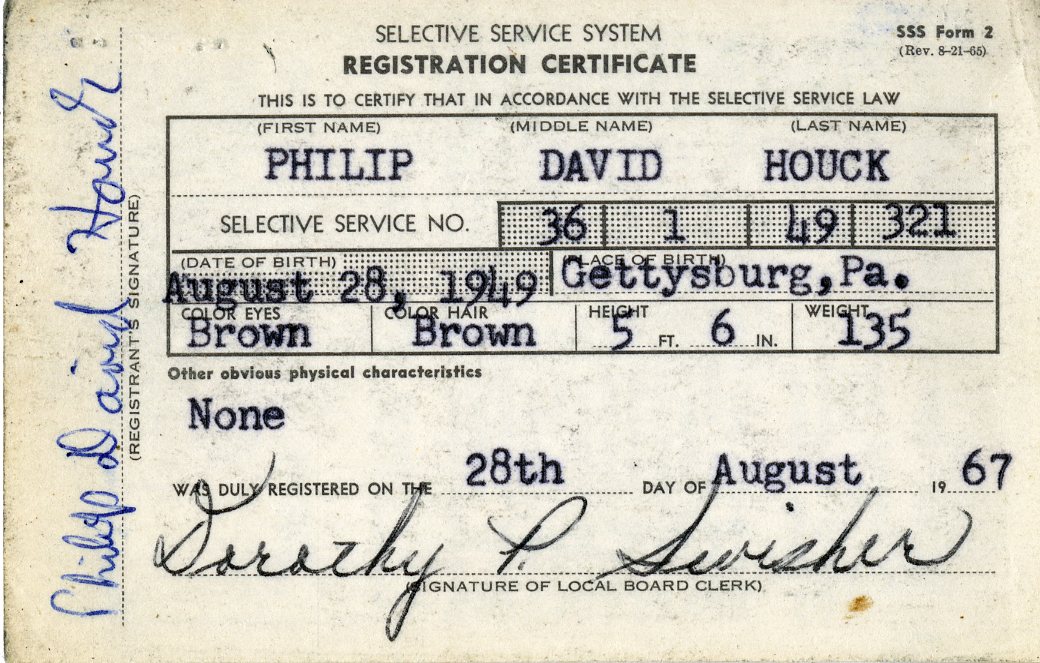 SELECTIVE SERVICE SYSTEM
SSS Form 2
REGISTRATION CERTIFICATE
(Rev. 8-21-65)
THIS IS TO CERTIFY THAT IN ACCORDANCE WITH THE SELECTIVE SERVICE LAW
(FIRST NAME) (MIDDLE NAME) (LAST NAME)
PHILIP DAVID HOUCK
SELECTIVE SERVICE NO. 36 1 49 321
(DATE OF BIRTH) (PLACE OF BIRTH)
August 28, 1949 Gettysburg,Pa.
COLOR EYES COLOR HAIR HEIGHT WEIGHT
Brown Brown 5 FT. 6 IN. 135
Other obvious physical characteristics
None
WAS DULY REGISTERED ON THE 28th DAY OF August 19 67
Dorothy P. Swisher
(SIGNATURE OF LOCAL BOARD CLERK)
Philip David Houck
(REGISTRANT'S SIGNATURE)